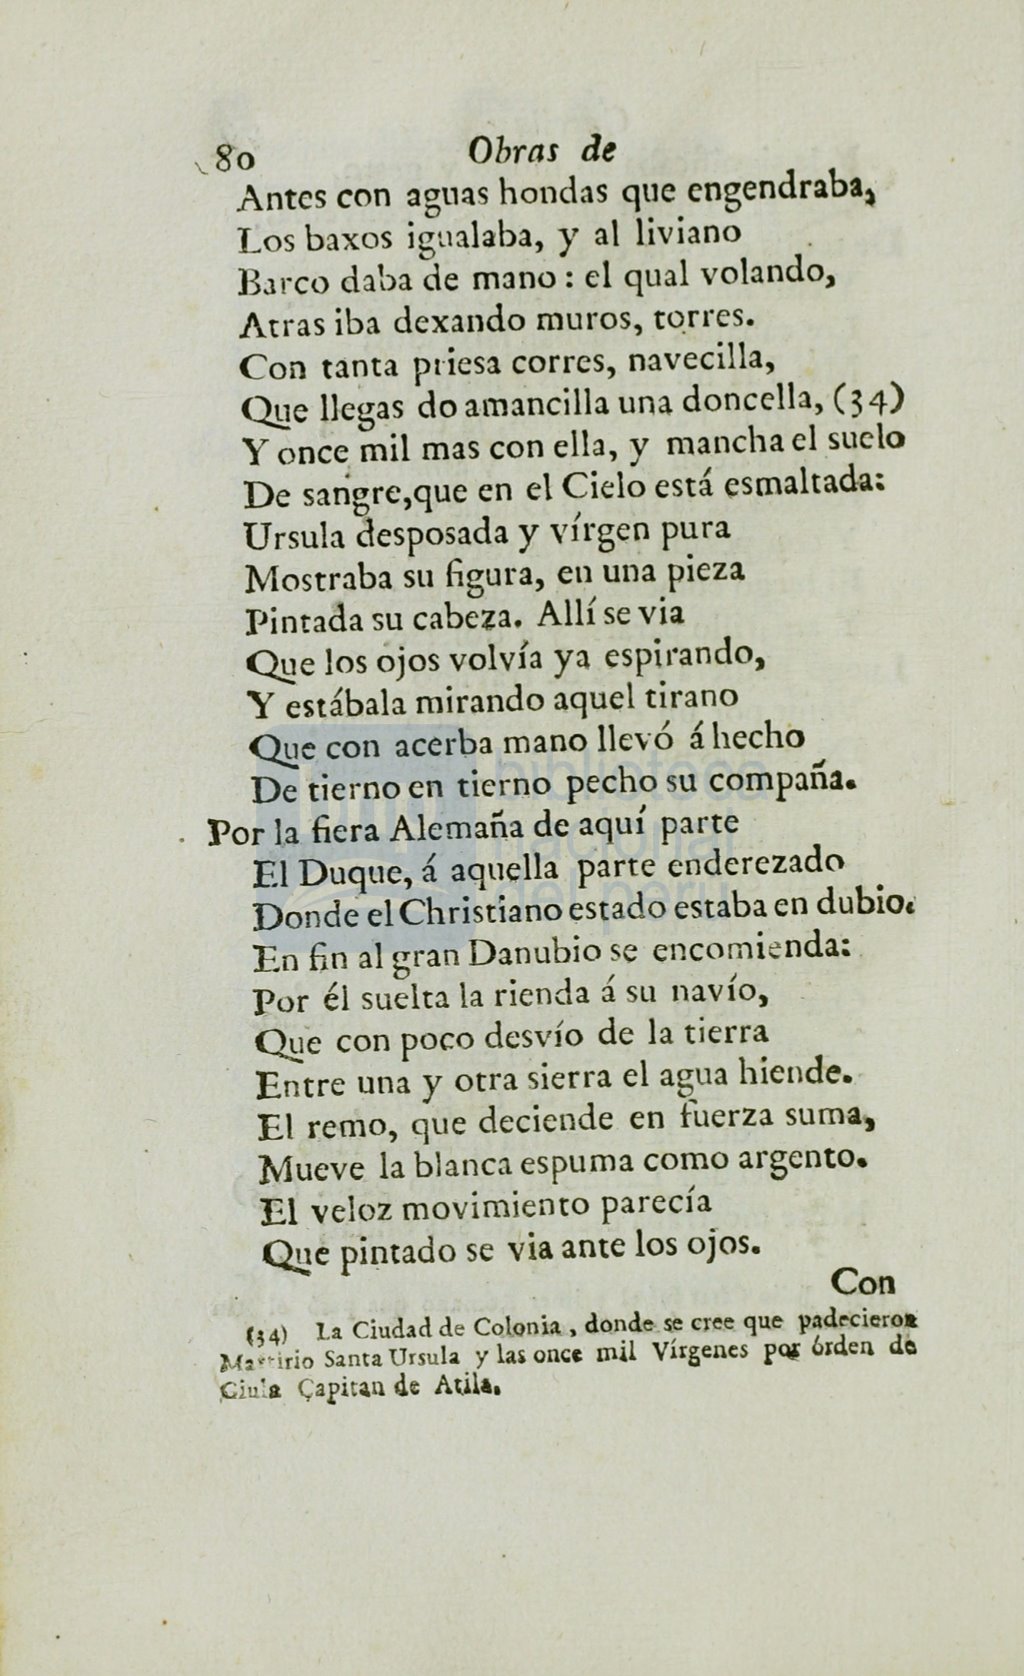 80 Obras de
Antes con aguas hondas que engendraba,
Los baxos igualaba, y al liviano
Barco daba de mano : el qual volando,
Atras iba dexando muros, torres.
Con tanta priesa corres, navecilla,
Que llegas do amancilla una doncella, (34)
Y once mil mas con ella, y mancha el suelo
De sangre,que en el Cielo está esmaltada:
Ursula desposada y vírgen pura
Mostraba su figura, en una pieza
Pintada su cabeza. Allí se via
Que los ojos volvía ya espirando,
Y estábala mirando aquel tirano
Que con acerba mano llevó á hecho
De tierno en tierno pecho su compaña.
Por la fiera Alemaña de aquí parte
El Duque, á aquella parte enderezado
Donde el Christiano estado estaba en dubio.
En fin al gran Danubio se encomienda:
Por él suelta la rienda á su navío,
Que con poco desvío de la tierra
Entre una y otra sierra el agua hiende.
El remo, que deciende en fuerza suma,
Mueve la blanca espuma como argento.
El veloz movimiento parecía
Que pintado se via ante los ojos.
Con
(34) La Ciudad de Colonia , donde se cree que padecieron
Martirio Santa Ursula y las once mil Vírgenes por órden de
Giula Capitan de Atila.
biblioteca
nacional
del perú